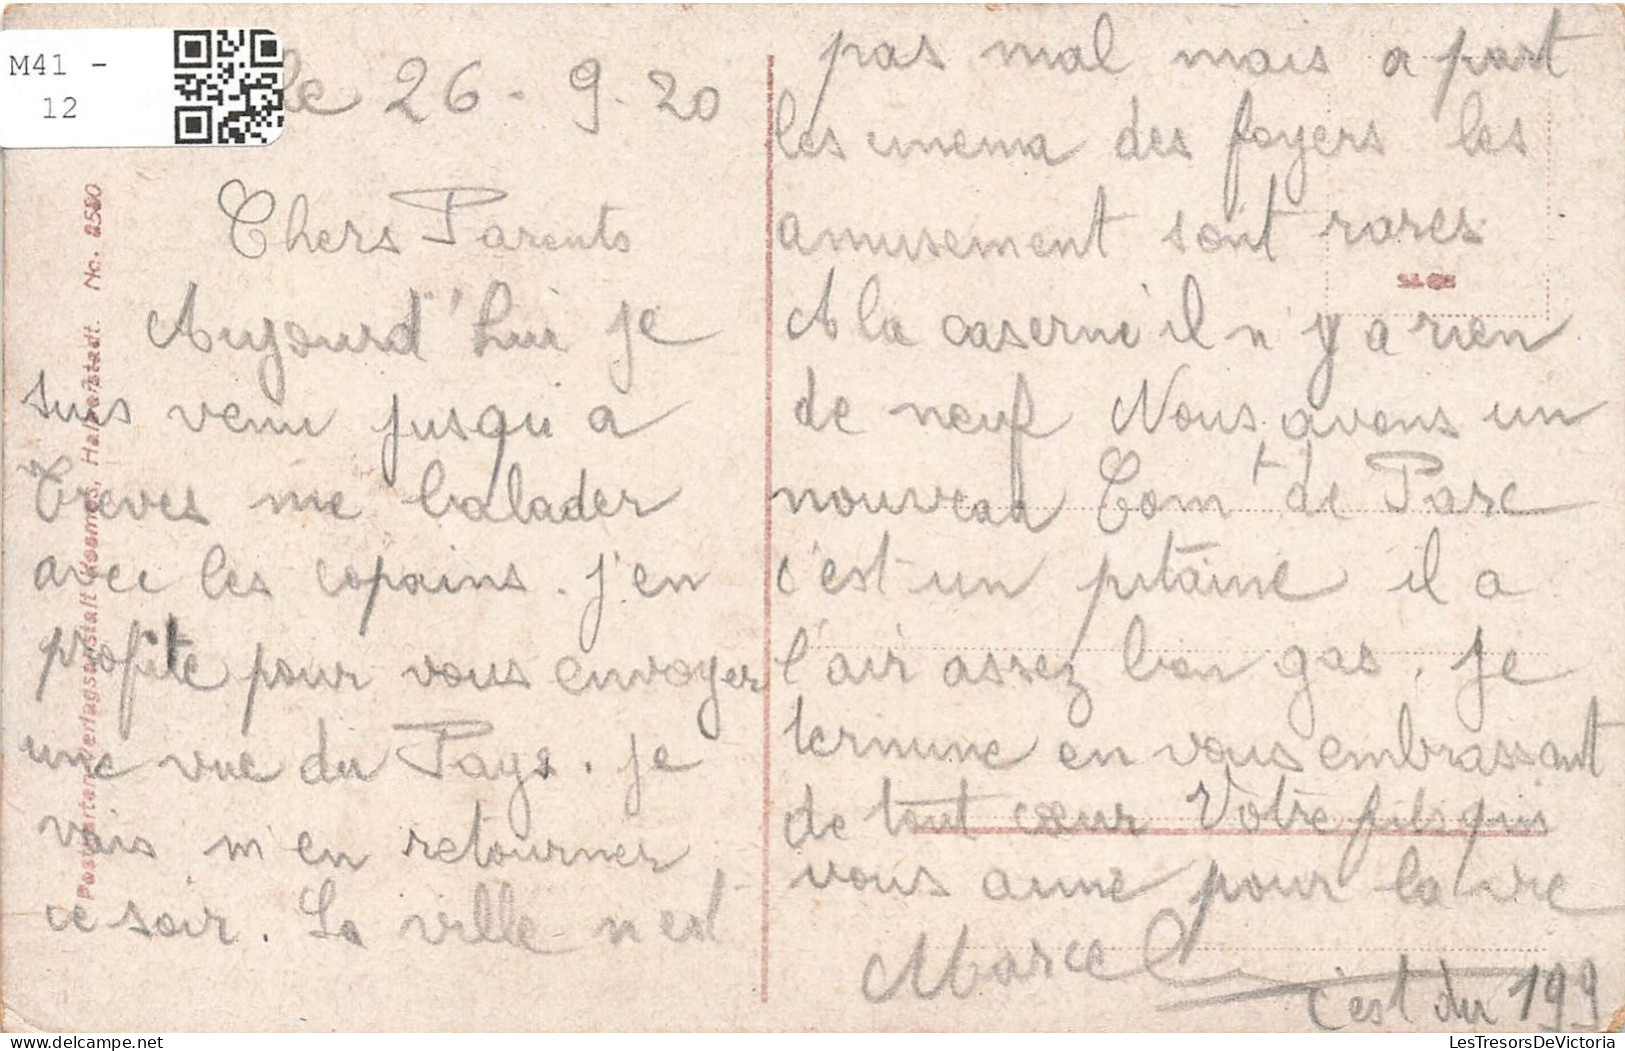 M41 -
12
le 26-9-20
Chers Parents
Aujourd'hui je
suis venu jusqu'a
Treves me balader
avec les copains. j'en
profite pour vous envoyer
une vue du Pays. je
vais m'en retourner
ce soir. La ville n'est
pas mal mais a part
les cinema des foyers les
amusement sont rares
A la caserne il n'y a rien
de neuf Nous avons un
nouveau Comt de Parc
c'est un pitaine il a
l'air assez bon gas. je
termine en vous embrassant
de tout cœur Votre fils qui
vous aime pour la vie
Marcel
c'est du 199
Postkarten-Verlagsanstalt Kosmos, Halberstadt. No. 8580
LesTresorsDeVictoria